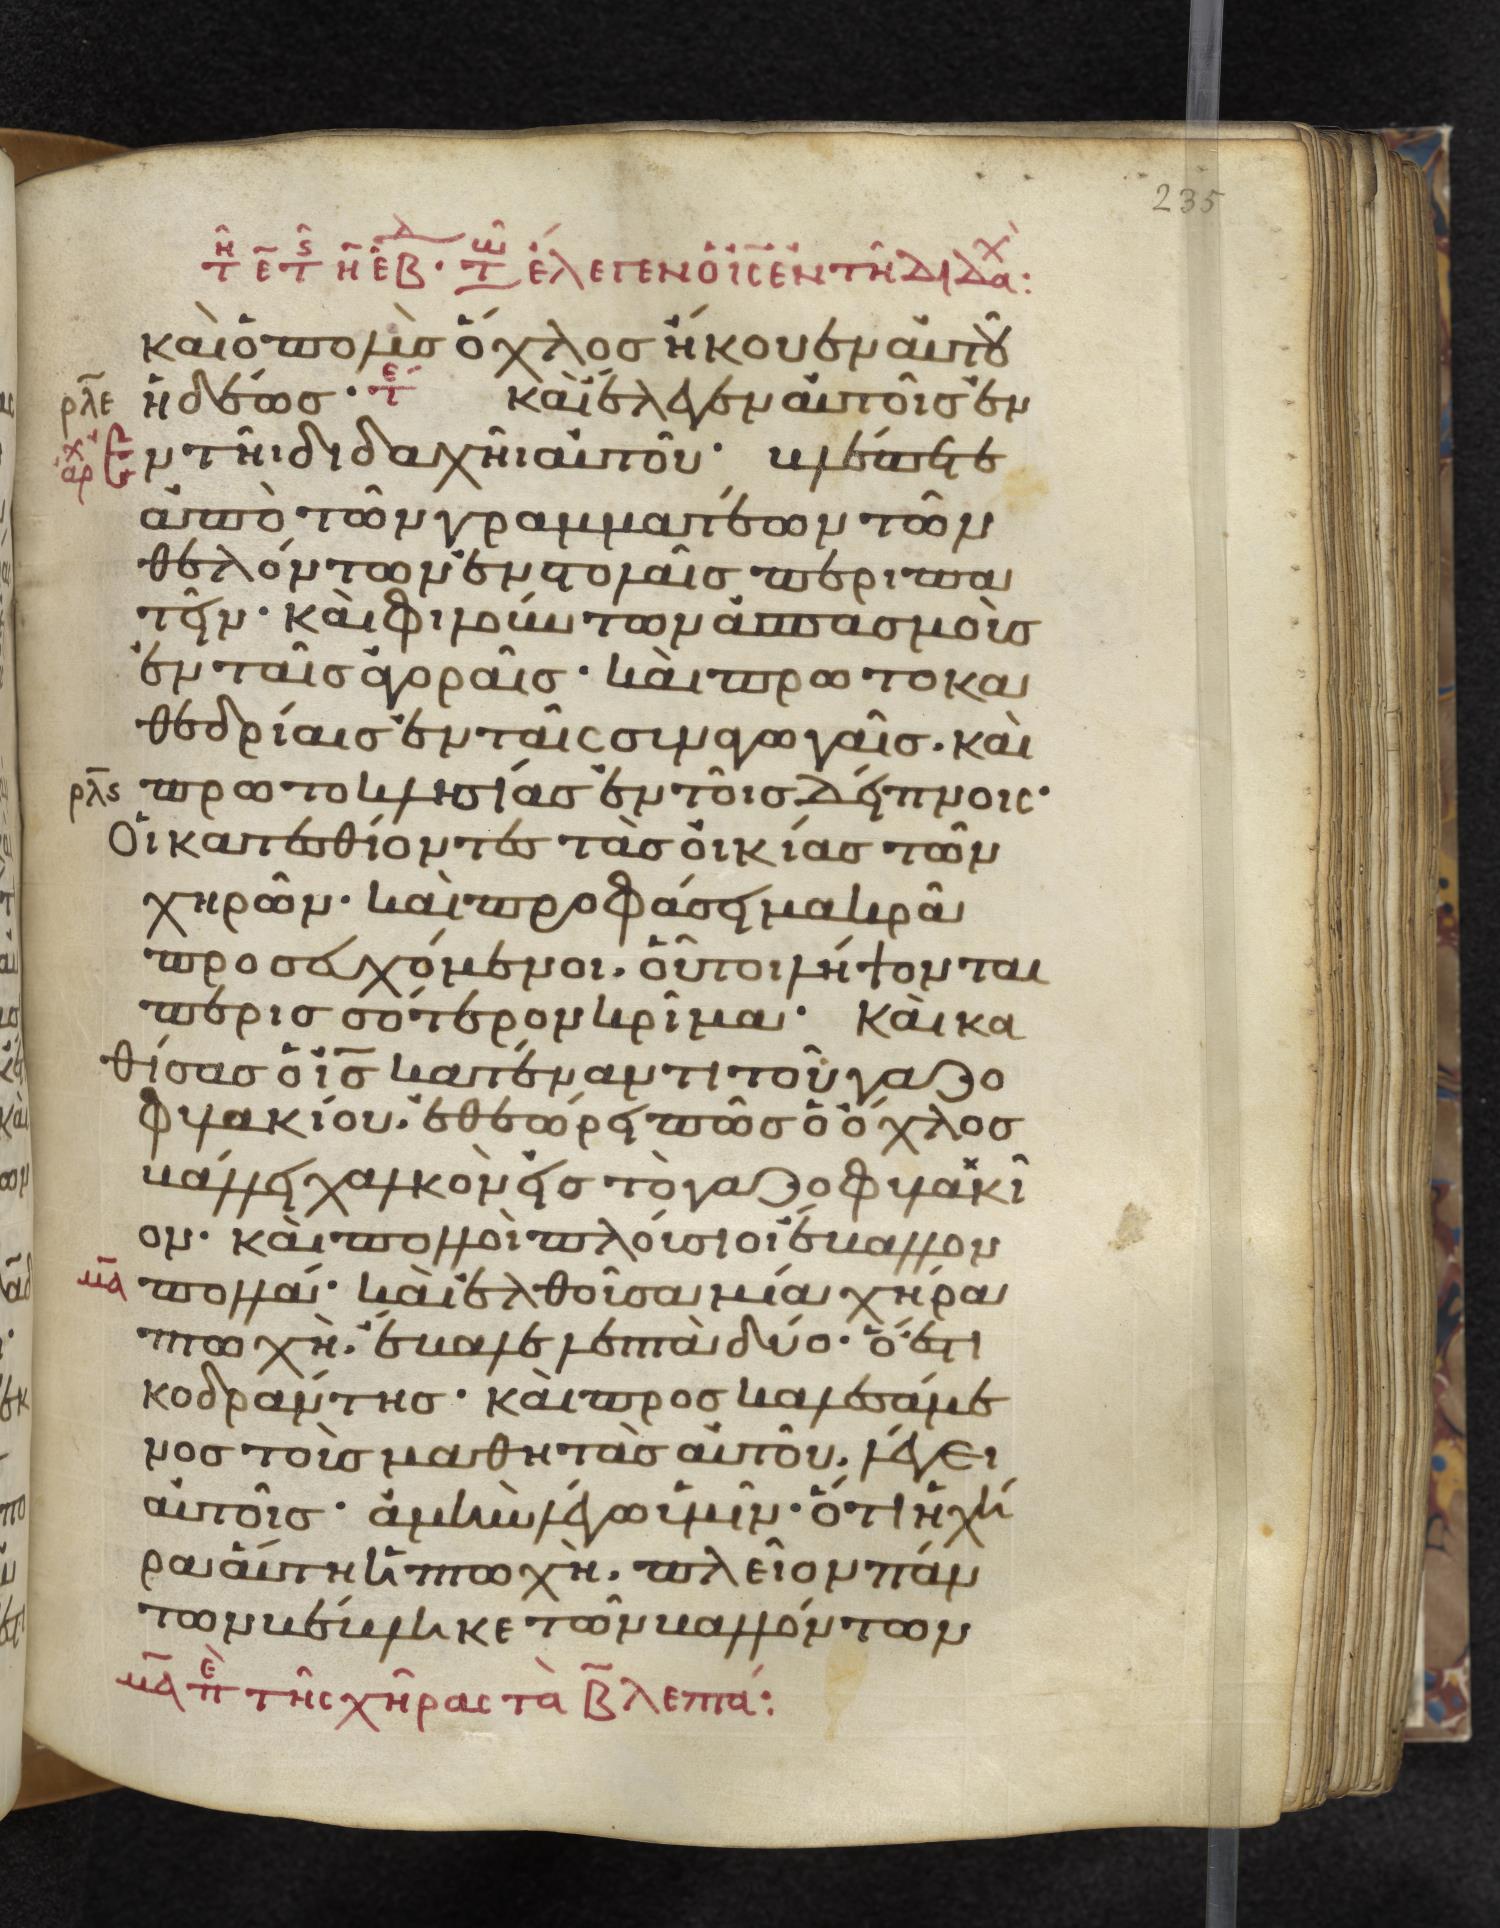 τῆ ε̄ τ ϛ τῆ η̄ ἑβδ· τῷ ἔλεγεν ὁ ις ἐν τῆ διδαχ:
καὶ ὁ πολὺσ ὄχλοσ ἤκουεν αὐτοῦ
ρλε ἡδέωσ· τε καὶ ἔλεγεν αὐτοῖσ ἐν
αρχ ἐν τῆι διδαχῆι αὐτοῦ· βλέπετε
ἀπὸ τῶν γραμματέων τῶν
θελόντων ἐν στολαῖσ περιπα
τεῖν· καὶ φιλούντων ἀσπασμοὺσ
ἐν ταῖσ ἀγοραῖσ· καὶ πρωτοκα
θεδρίαισ ἐν ταῖς συναγωγαῖσ· καὶ
ρλϛ πρωτοκλησίασ ἐν τοῖσ δείπνοις·
Οἱ κατεσθίοντεσ τὰσ οἰκίασ τῶν
χηρῶν· καὶ προφάσει μακρᾶ
προσευχόμενοι· οὗτοι λήψονται
περισσότερον κρῖμα· Καὶ κα
θίσασ ὁ ισ κατέναντι τοῦ γαζο
φυλακίου· ἐθεώρει πῶσ ὁ ὄχλοσ
βάλλει χαλκὸν εἰσ τὸ γαζοφυλακῖ
ον· καὶ πολλοὶ πλούσιοι ἔβαλλον
μα πολλά· καὶ ἐλθοῦσα μία χήρα
πτωχὴ· ἔβαλε λεπτὰ δύο· ὅ ἐστι
κοδράντησ· καὶ προσκαλεσάμε
νοσ τοὺσ μαθητὰσ αὐτοῦ· λέγει
αὐτοῖσ· ἀμὴν λέγω ὑμῖν· ὅτι ἡ χή
ρα αὕτη ἡ πτωχὴ· πλεῖον πάν
των βέβληκε τῶν βαλλόντων
μα πε τῆς χήρας τὰ β λεπτά: